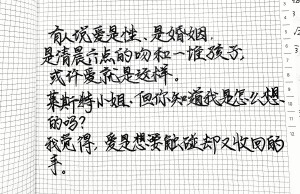 有人说爱是性、是婚姻,
是清晨六点的吻和一堆孩子,
或许爱就是这样。
莱斯特小姐.但你知道我是怎么想
的吗?
我觉得,爱是想要触碰却又收回的
手。